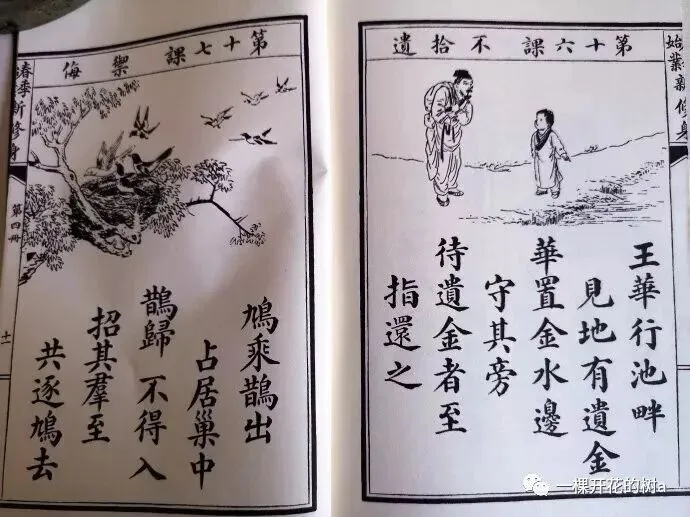 第十六課 不拾遺
王華行池畔
見地有遺金
華置金水邊
守其旁
待遺金者至
指還之
始業新修身
第十七課 禦侮
鳩乘鵲出
占居巢中
鵲歸不得入
招其羣至
共逐鳩去
春季新修身
第四冊
十一
一棵开花的树a